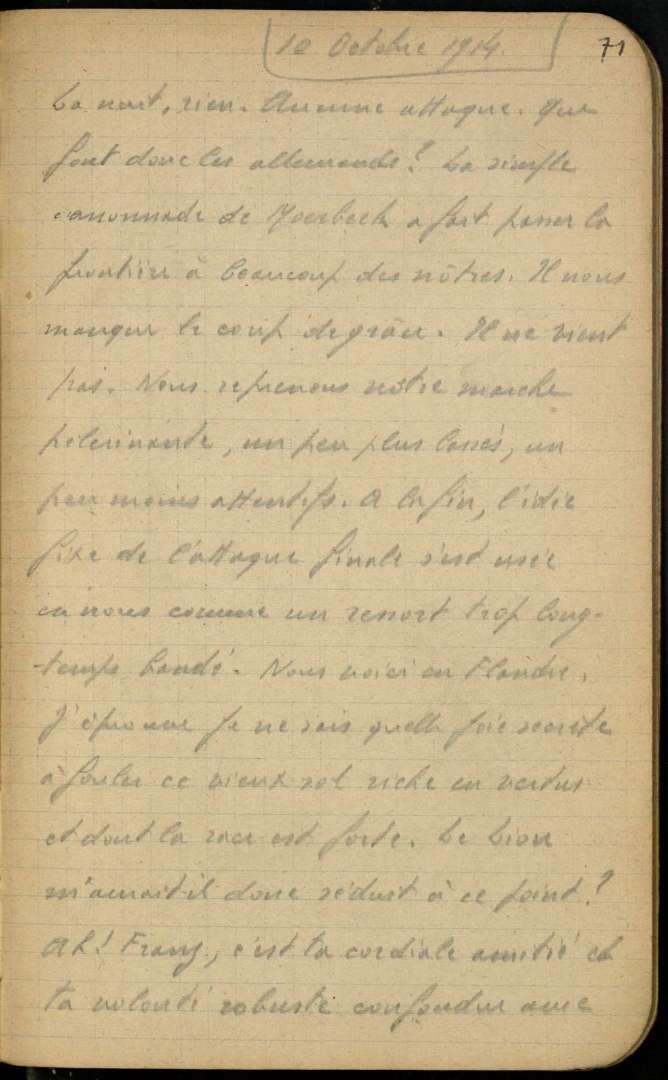 10 Octobre 1914.
71
La nuit, rien. Aucune attaque. Que
font donc les allemands? La simple
canonnade de Moerbeek a fait passer la
frontière à beaucoup des nôtres. Il nous
manque le coup de grâce. Il ne vient
pas. Nous reprenons notre marche
pelerinante, un peu plus lassés, un
peu moins attentifs. A la fin, l'idée
fixe de l'attaque finale s'est usée
en nous comme un ressort trop long-
-temps bandé. Nous voici en Flandre.
J'éprouve je ne sais quelle joie secrète
à fouler ce vieux sol riche en vertus
et dont la race est forte. Le Lion
m'aurait-il donc séduit à ce point?
Ah! Franz, c'est ta cordiale amitié et
ta volonté robuste confondue avec